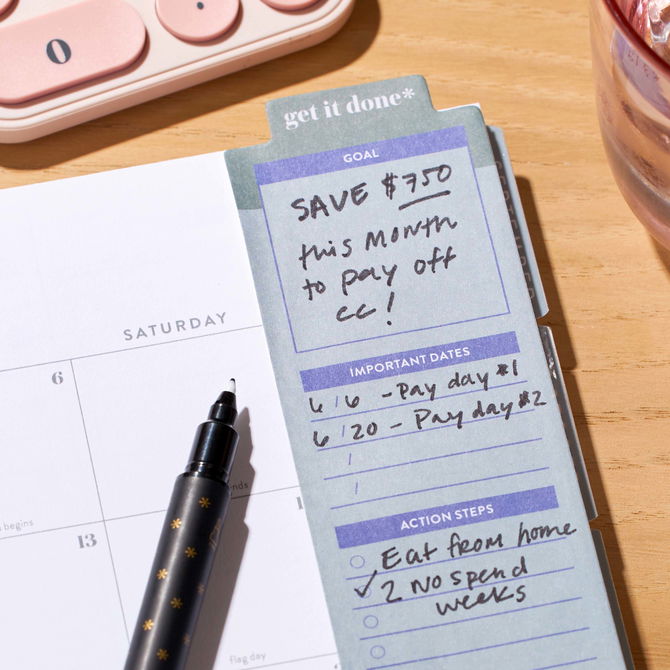 0
get it done*
GOAL
SAVE $750
this Month
to pay off
cc!
SATURDAY
6
IMPORTANT DATES
6/6 - Pay day #1
6/20 - Pay day #2
/
/
begins
13
ACTION STEPS
Eat from home
2 No spend
weeks
flag day